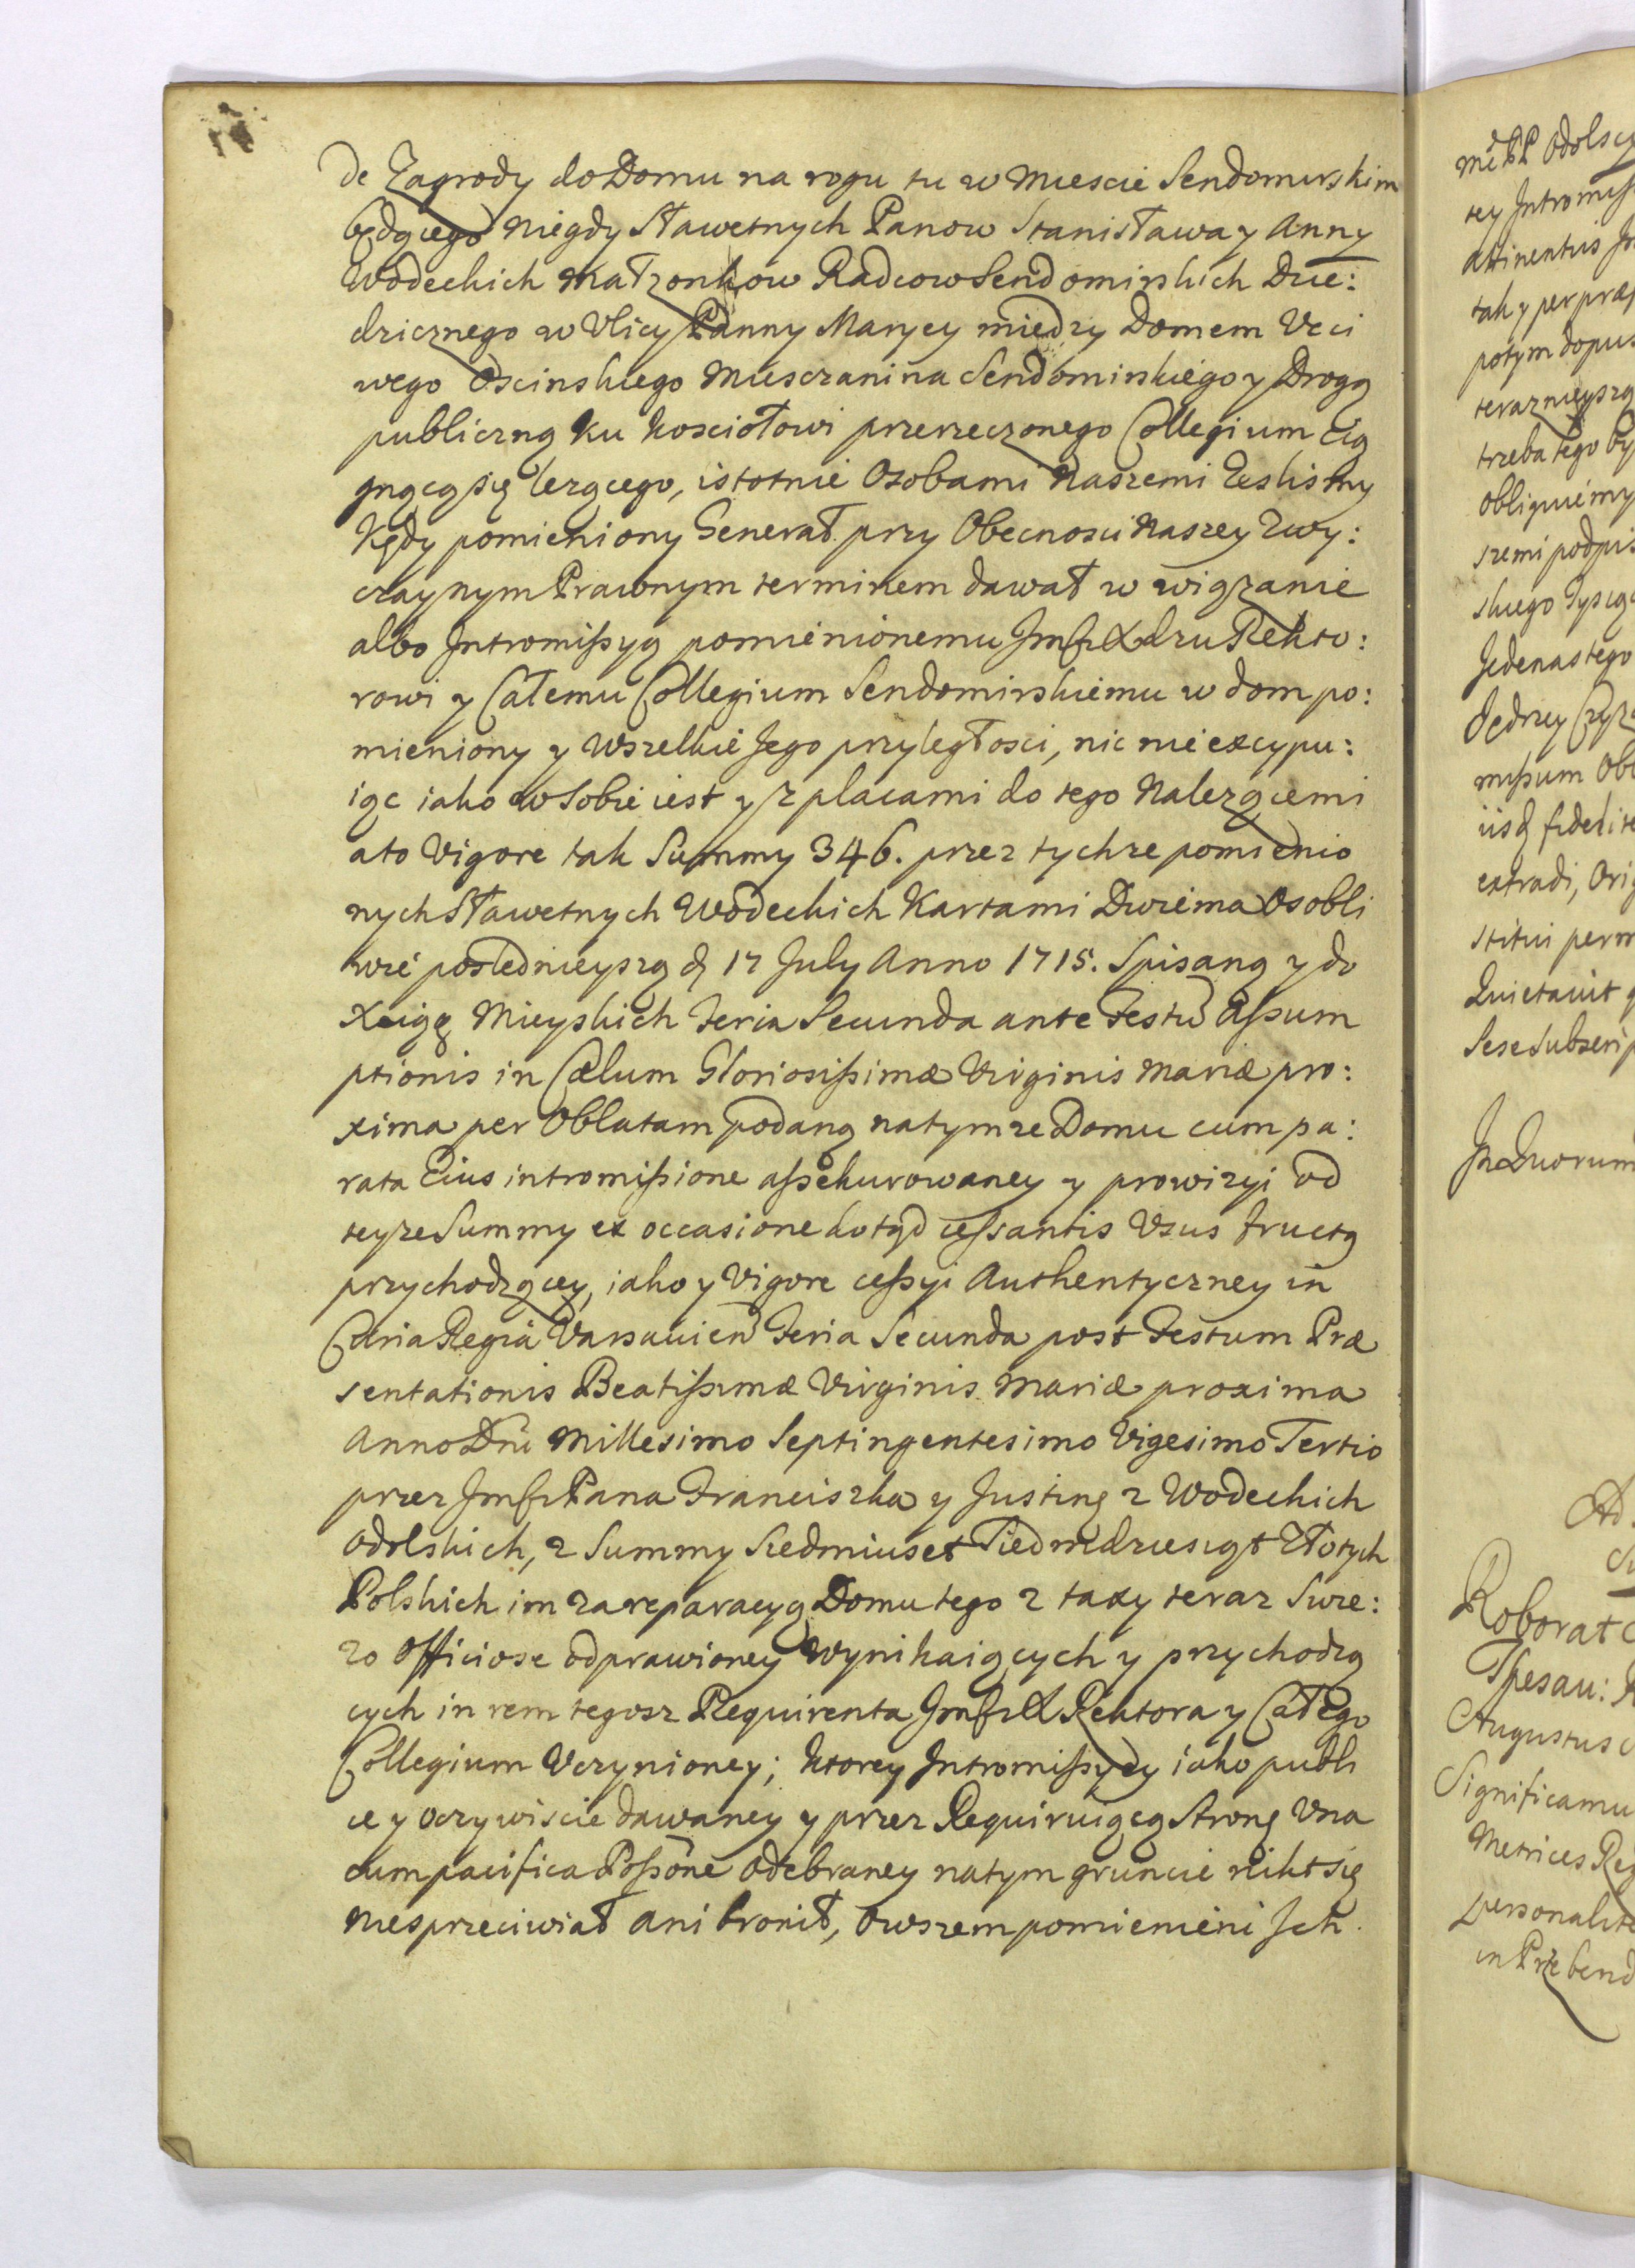 de Zagrody do Domu na rogu tu w Miescie Sendomirskim
będącego Niegdy Sławetnych Panow Stanisława y Anny
Wodeckich Małzonkow Radcow Sendomirskich Dzie:
dzicznego w Vlicy Panny Maryey między Domem Vcci
wego Oscinskiego Miesczanina Sendomirskiego y Drogą
publiczną Ku Kosciołowi przerzeczonego Collegium cią
gnącą się lezącego, istotnie Osobami Naszemi Zeslismy
Kędy pomieniony Generał przy Obecnosci Naszey Zwy:
czaynym Prawnym terminem dawał w wiązanie
albo Intromißyą pomienionemu Jmści Xdzu Rekto:
rowi y Całemu Collegium Sendomirskiemu w dom po:
mieniony y Wszelkie Jego przyległosci, nic nie excypu:
iąc iako w Sobie iest y z placami do tego Nalezącemi
a to Vigore tak Summy 346. przez tychze pomienio
nych Sławetnych Wodeckich Kartami Dwiema Osobli
wie poslednieyszą d 17 July Anno 1715. Spisaną y do
Xsiąg Mieyskich Feria Secunda ante Festũ Aßum
ptionis in Cælum Gloriosißimæ Virginis Mariæ pro:
xima per Oblatam podaną na tymze Domu cum pa:
rata Eius intromißione aßekurowaney y prowizyi od
teyze Summy ex occasione dotąd ceßantis Vsus fructq
przychodzącey, iako y Vigore ceßyi Authentyczney in
Curia Regia Varsavien Feria Secunda post Festum Præ
sentationis Beatißimæ Virginis Mariæ proxima
Anno Dni Millesimo Septingentesimo Vigesimo Tertio
przez Jmści Pana Franciszka y Justinę z Wodeckich
Odolskich, z Summy Siedmiuset Siedmdziesiąt Złotych
Polskich im za reparacyą Domu tego z taxy teraz Swie:
zo Officiose odprawioney wynikaiących y przychodzą
cych in rem tegosz Requirenta Jmści X Rektora y Całego
Collegium Vczynioney; Ktorey Intromißyey iako publi
ce y Oczywiscie dawaney y przez Requiruiącą Stronę Vna
cum pacifica Poßõne Odebraney na tym gruncie nikt się
niesprzeciwiał ani bronił, Owszem pomienieni Ich
mć PP Odolscy
tey Intromiß
potym dopus
terazniejszą
trzeba tego by
szemi podpis
Jedenastego
extradi,
Quietavit
Sese Subscrip
In Quorum
Roborat
Thesau:
Augustus
Significamu
Metrices Reg
personalite